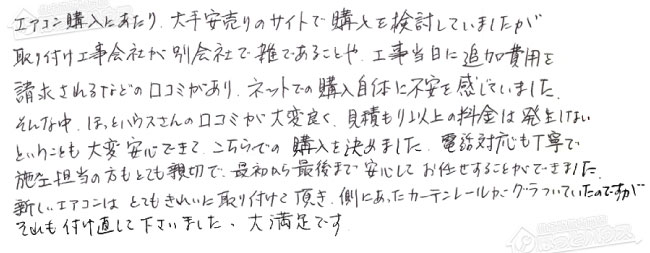 エアコン購入にあたり、大手安売りのサイトで購入を検討していましたが
取り付け工事会社が別会社で雑であることや、工事当日に追加費用を
請求されるなどの口コミがあり、ネットでの購入自体に不安を感じていました。
そんな中、ほっとハウスさんの口コミが大変良く、見積もり以上の料金は発生しない
ということも大変安心できて、こちらでの購入を決めました。電話対応も丁寧で
施工担当の方もとても親切で、最初から最後まで安心してお任せすることができました。
新しいエアコンはとてもきれいに取り付けて頂き、側にあったカーテンレールがグラついていたのですが
それも付け直して下さいました。大満足です。